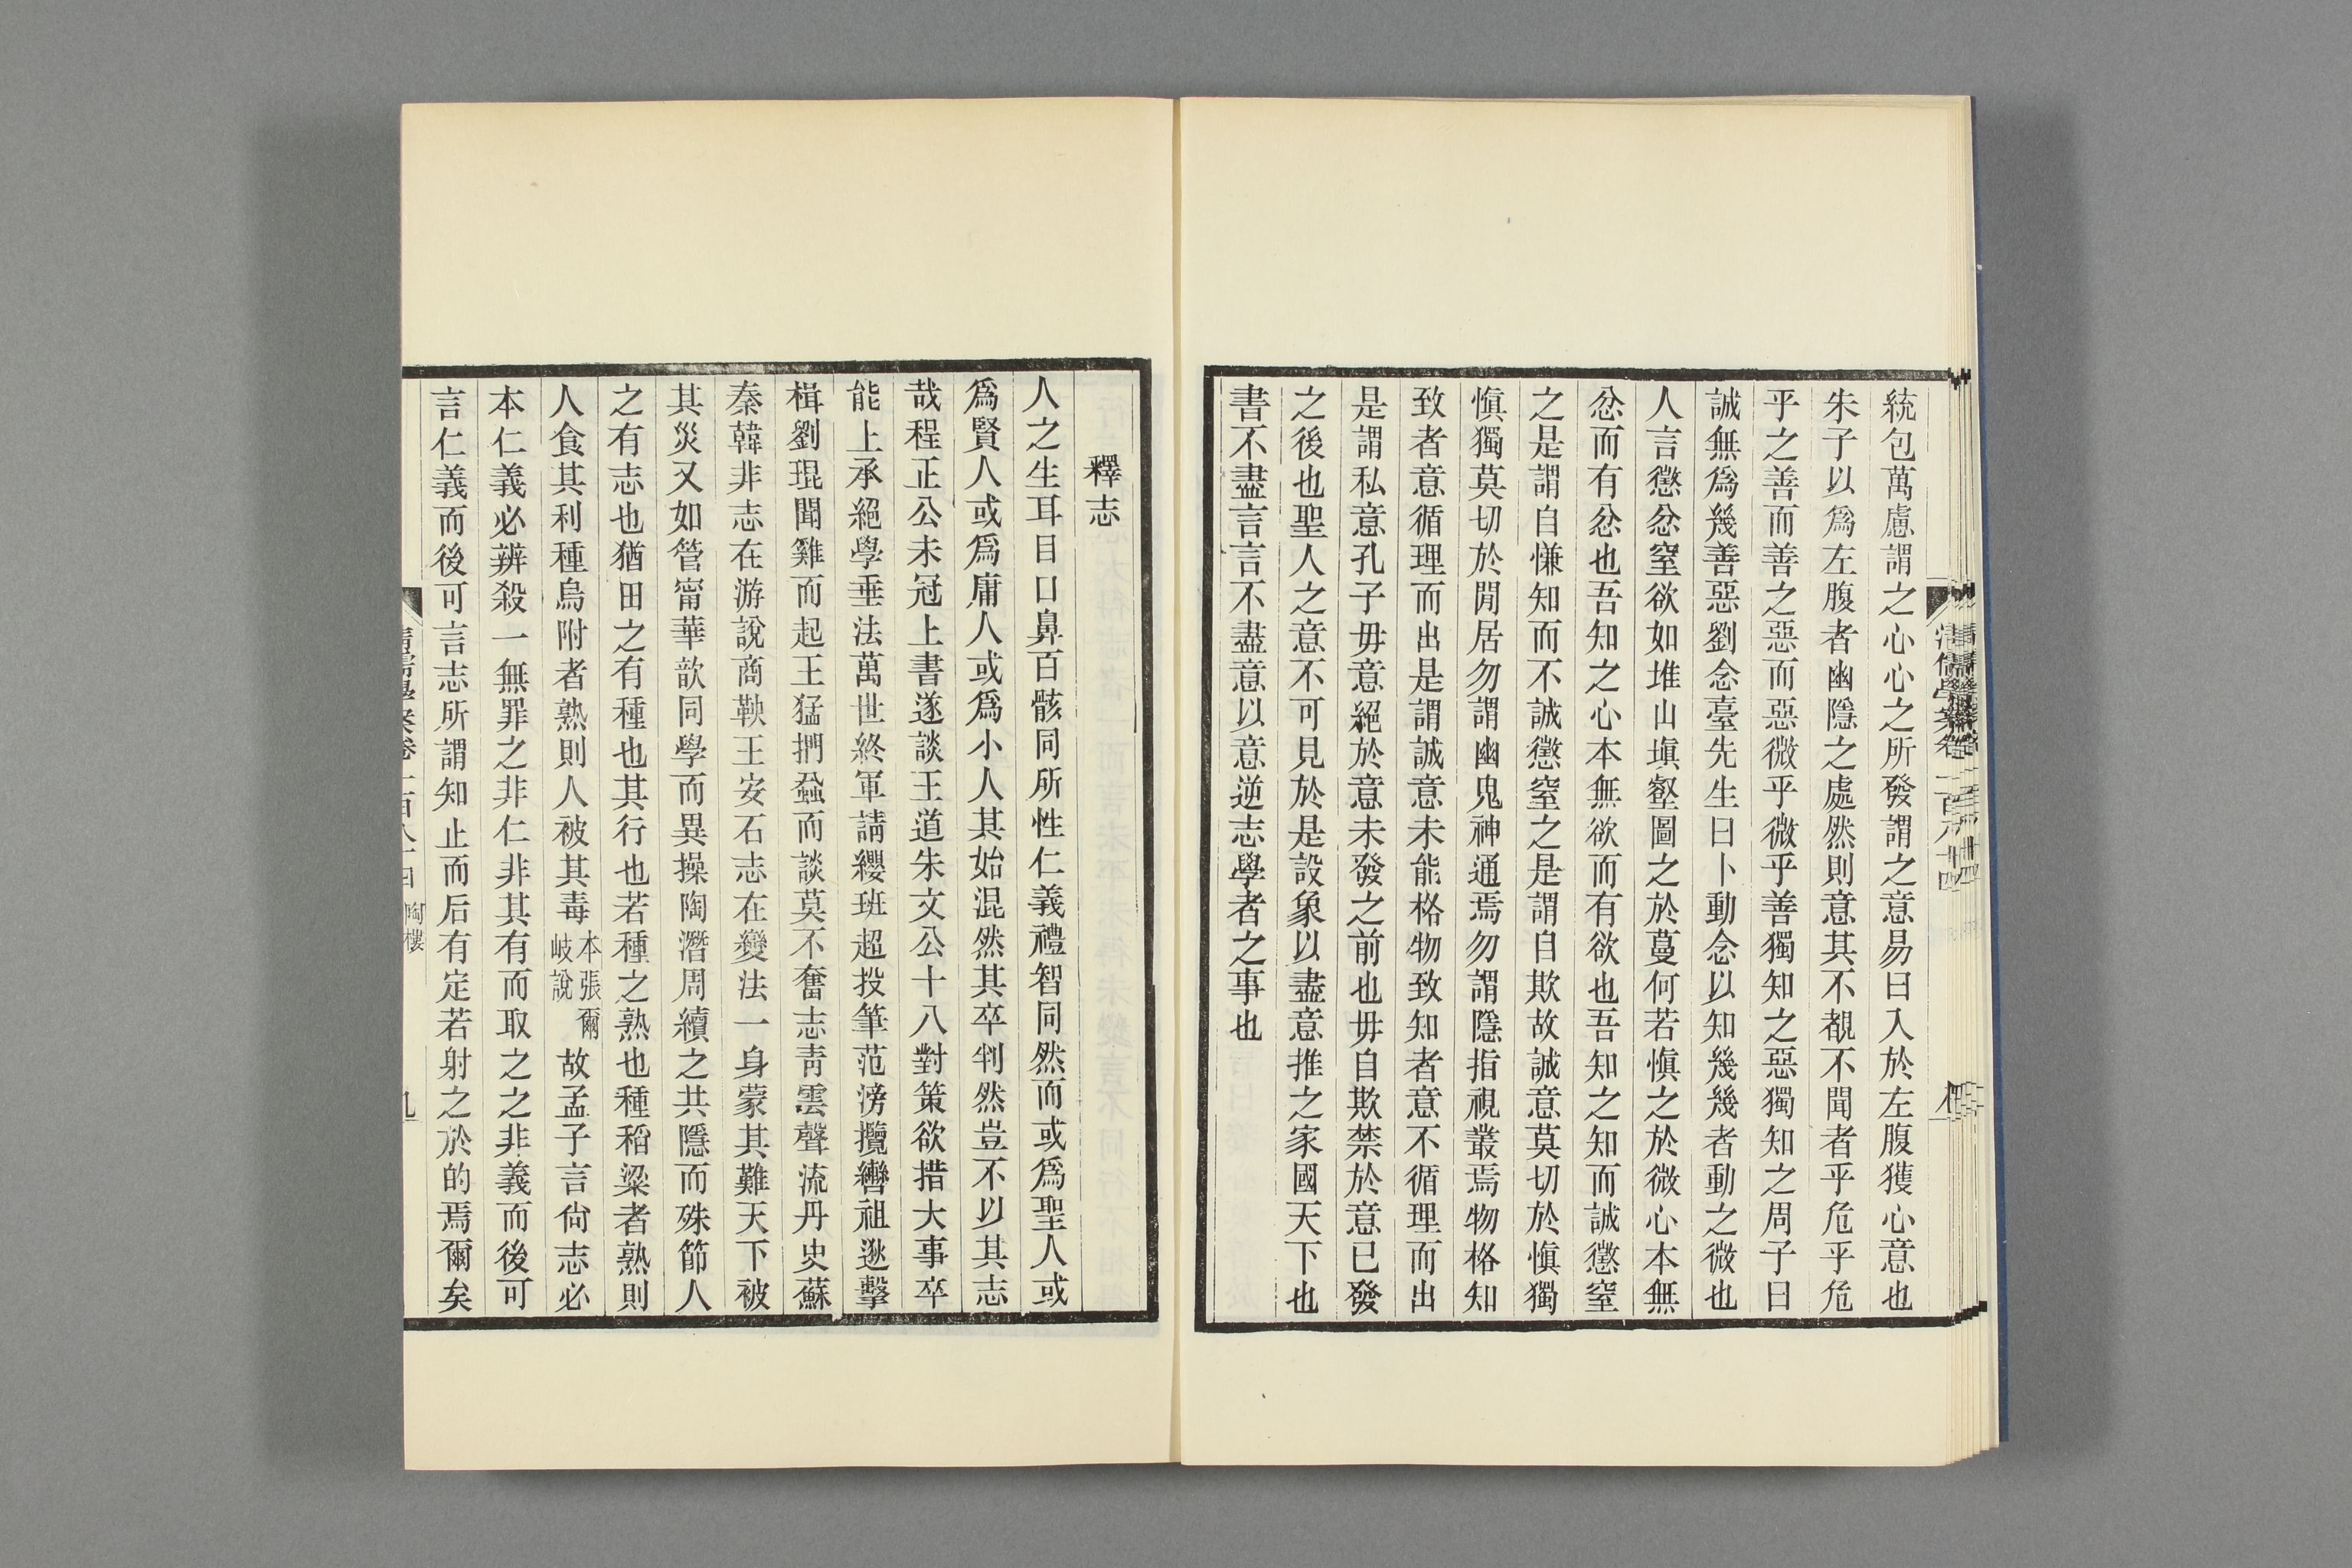 統包萬慮謂之心心之所發謂之意易曰入於左腹獲心意也
朱子以爲左腹者幽隱之處然則意其不覩不聞者乎危乎危
乎之善而善之惡而惡微乎微乎善獨知之惡獨知之周子曰
誠無爲幾善惡劉念臺先生曰卜動念以知幾幾者動之微也
人言懲忿窒欲如堆山塡壑圖之於蔓何若愼之於微心本無
忿而有忿也吾知之心本無欲而有欲也吾知之知而誠懲窒
之是謂自慊知而不誠懲窒之是謂自欺故誠意莫切於愼獨
愼獨莫切於閒居勿謂幽鬼神通焉勿謂隱指視叢焉物格知
致者意循理而出是謂誠意未能格物致知者意不循理而出
是謂私意孔子毋意絕於意未發之前也毋自欺禁於意已發
之後也聖人之意不可見於是設象以盡意推之家國天下也
書不盡言言不盡意以意逆志學者之事也
釋志
人之生耳目口鼻百骸同所性仁義禮智同然而或爲聖人或
爲賢人或爲庸人或爲小人其始混然其卒判然豈不以其志
哉程正公未冠上書遂談王道朱文公十八對策欲措大事卒
能上承絕學垂法萬世終軍請纓班超投筆范滂攬轡祖逖擊
楫劉琨聞雞而起王猛捫蝨而談莫不奮志靑雲聲流丹史蘇
秦韓非志在游說商鞅王安石志在變法一身蒙其難天下被
其災又如管甯華歆同學而異操陶潛周續之共隱而殊節人
之有志也猶田之有種也其行也若種之熟也種稻粱者熟則
人食其利種烏附者熟則人被其毒本張爾岐說故孟子言尙志必
本仁義必辨殺一無罪之非仁非其有而取之之非義而後可
言仁義而後可言志所謂知止而后有定若射之於的焉爾矣
陶樓